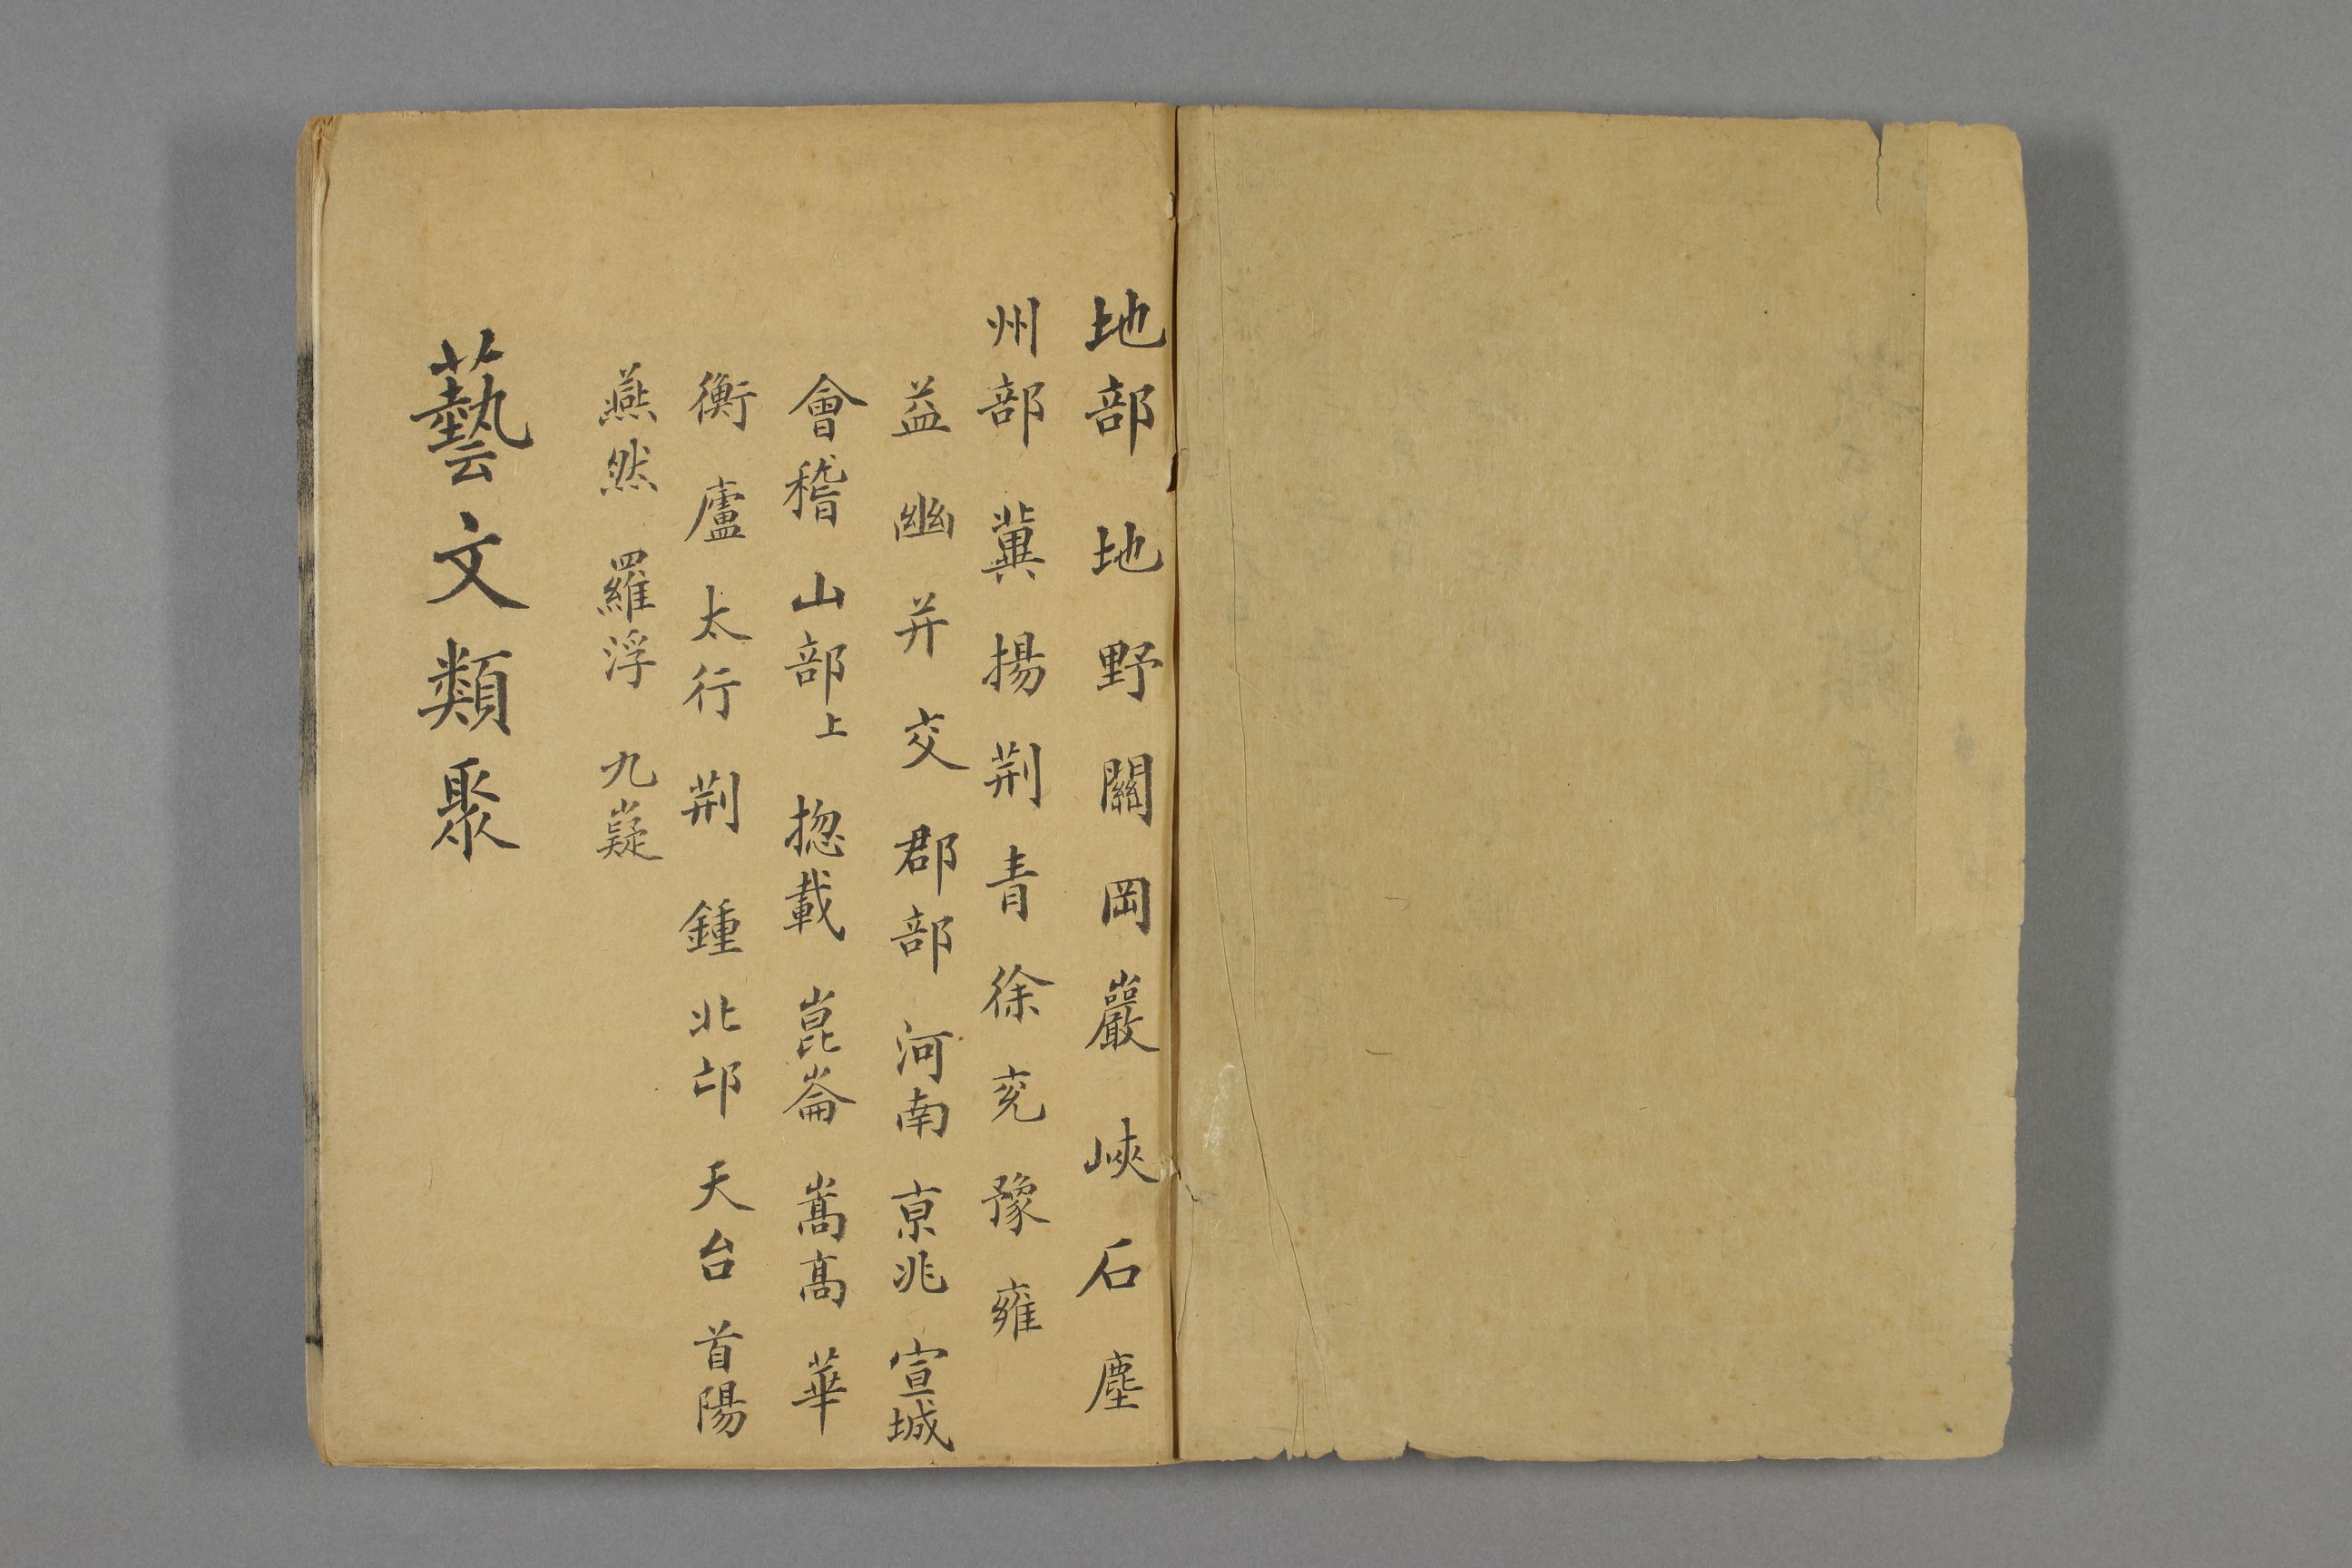 地部 地 野 關 岡 巖 峽 石 塵
州部 冀 揚 荆 青 徐 兖 豫 雍
益 幽 并 交 郡部 河南 京兆 宣城
會稽 山部上 揔載 崑崙 嵩髙 華
衡 廬 太行 荆 鍾 北邙 天台 首陽
燕然 羅浮 九嶷
藝文類聚